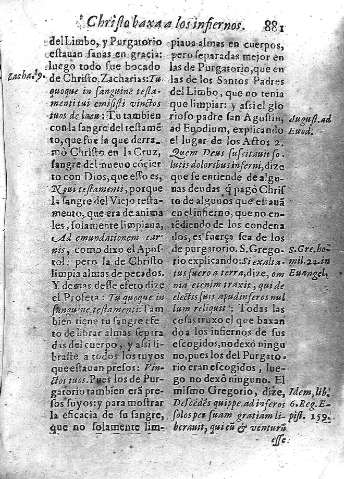 Christo baxa a los infiernos.
881
del Limbo, y Purgatorio
estauan sanas en gracia:
luego todo fue bocado
de Christo. Zacharias: Tu
quoque in sanguine testa-
menti tui emisisti vinctos
tuos de lacu: Tu tambien
con la sangre del testamẽ
to, que fue la que derra-
mò Christo en la Cruz,
sangre del nueuo cõcier
to con Dios, que esto es,
Nous testamenti, porque
la sangre del Viejo testa-
mento, que era de anima
les, solamente limpiaua,
Ad emundationem car-
nis, como dixo el Apos-
tol: pero la de Christo
limpia almas de pecados.
Y demas deste efeto dize
el Profeta: Tu quoque in
sanguine testamenti: Tam
bien tiene tu sangre efe
to de librar almas separa
das del cuerpo, y assi li-
braste a todos los tuyos
que estauan presos: Vin-
ctos tuos. Pues los de Pur-
gatorio tambien erã pre-
sos tuyos: y para mostrar
la eficacia de su sangre,
que no solamente lim-
Zacha. 9.
piaua almas en cuerpos,
pero separadas mejor en
las de Purgatorio, que en
las de los Santos Padres
del Limbo, que no tenia
que limpiar: y assi el glo
rioso padre san Agustin,
ad Eqodium, explicando
el lugar de los Actos 2.
Quem Deus suscitauit so-
lutis doloribus inferni, dize
que se entiende de algu-
nas deudas q̃ pagò Chris
to de algunos que estauã
en el infierno, que no en-
tẽdiendo de los condena
dos, es fuerça sea de los
de purgatorio. S. Grego-
rio explicando: Si exalta-
tus fuero a terra, dize, om
nia etenim traxit, qui de
electis suis apud inferos nul
lum reliquit: Todas las
cosas truxo el que baxan
do a los infiernos de sus
escogidos, no dexò ningu
no, pues los del Purgato-
rio eran escogidos, lue-
go no dexò ninguno. El
mismo Gregorio, dize,
Descẽdẽs quippe ad inferos
solos per suam gratiam li-
berauit, qui eũ & venturũ
esse
August. ad
Euod.
S. Gre. ho-
mil. 22. in
Euangel.
Idem, lib.
6. Reg. E-
pist. 159.